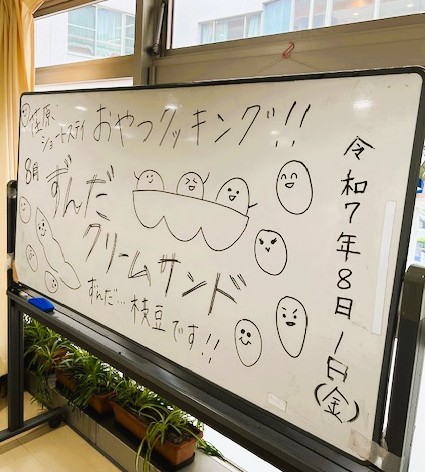 荏原
ショートステイ
おやつクッキング!!
8月
ずんだ
クリームサンド
ずんだ…枝豆です!!
令和7年8日1日(金)